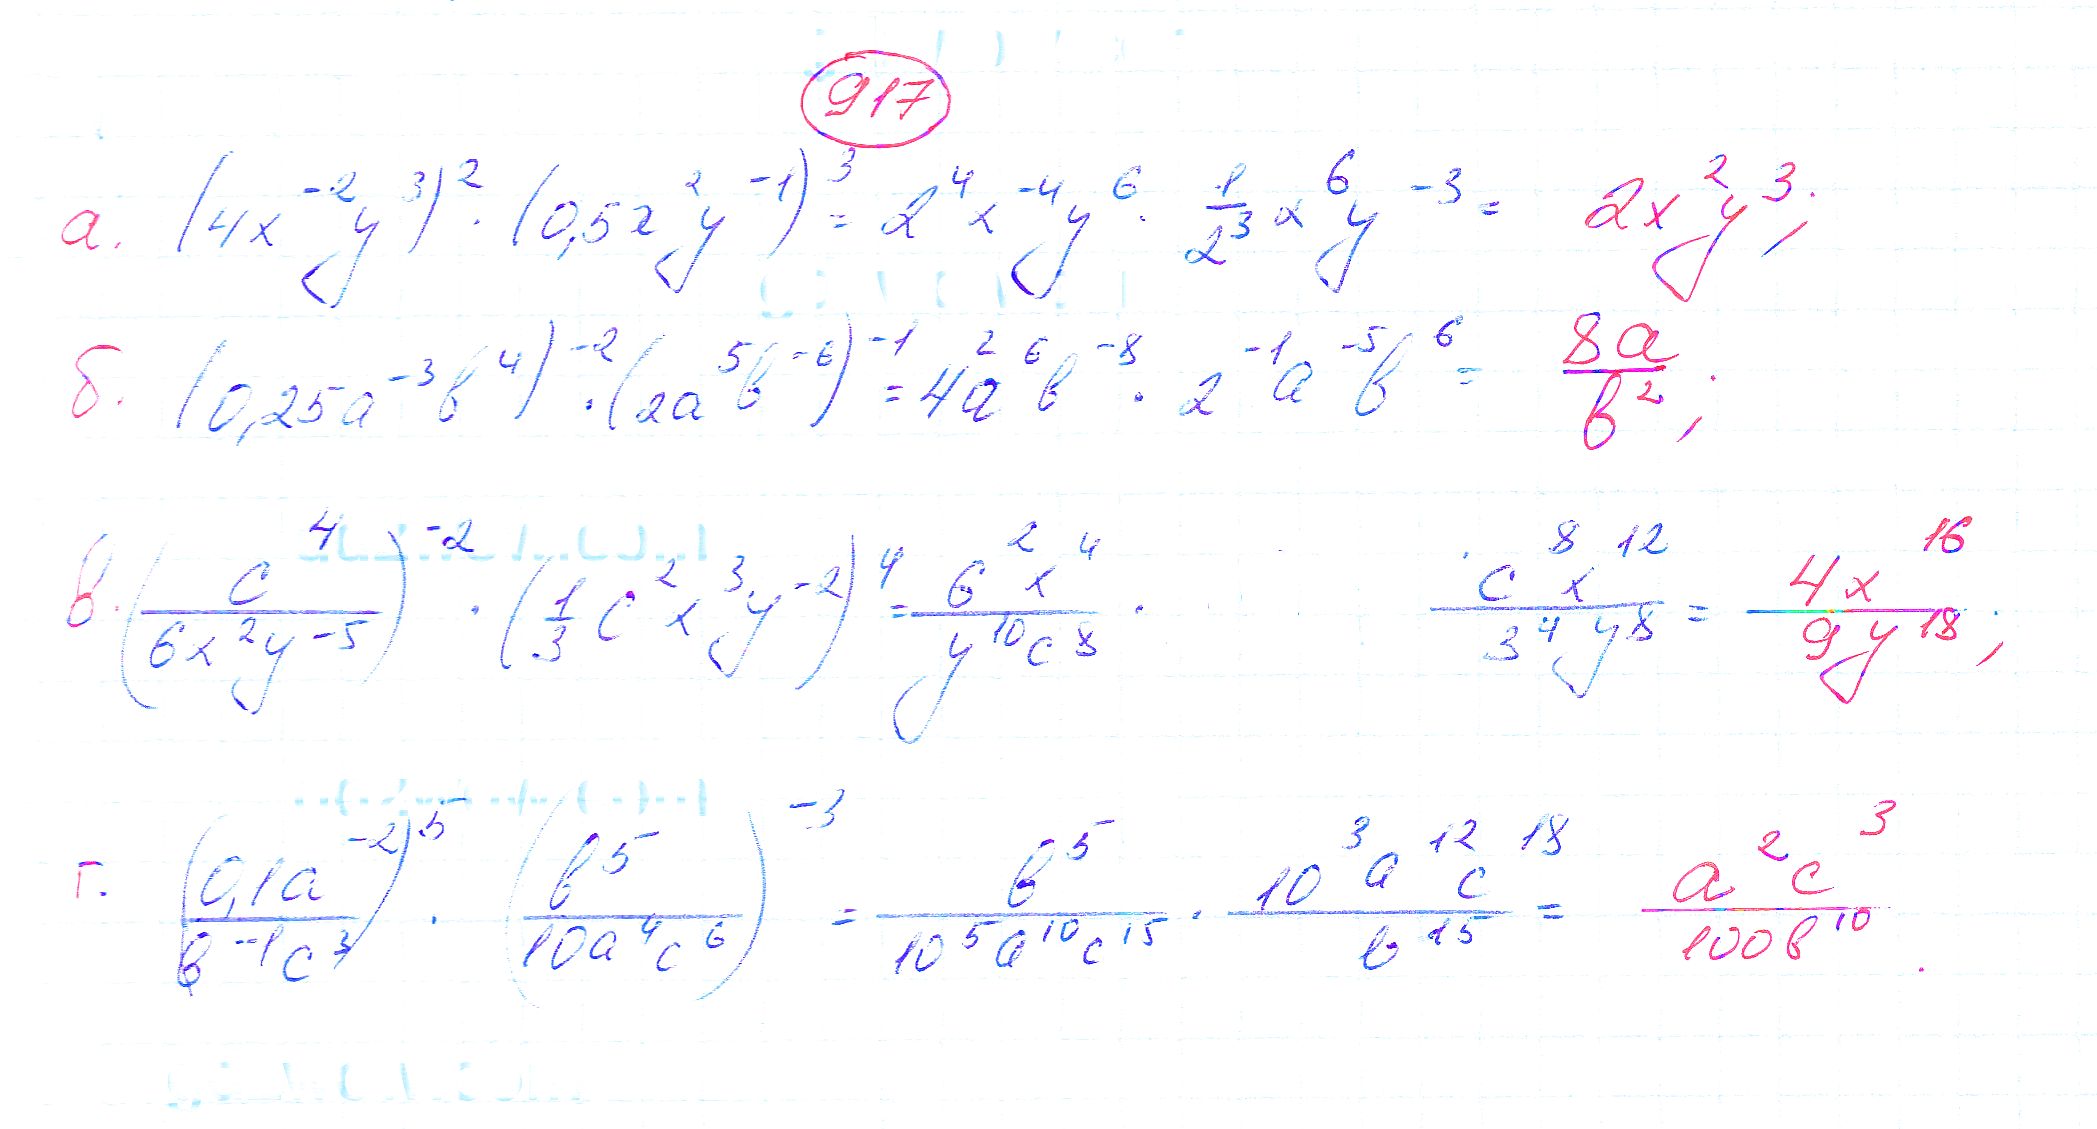 917
а. (4x⁻²y³)² · (0,5x²y⁻¹)³ = 2⁴x⁻⁴y⁶ · 1/2³ x⁶y⁻³ = 2x²y³;
б. (0,25a⁻³b⁴)⁻² · (2a⁵b⁻⁶)⁻¹ = 4²a⁶b⁻⁸ · 2⁻¹a⁻⁵b⁶ = 8a/b²;
в. (c⁴/6x²y⁻⁵)⁻² · (1/3 c²x³y⁻²)⁴ = 6²x⁴/y¹⁰c⁸ · c⁸x¹²/3⁴y⁸ = 4x¹⁶/9y¹⁸;
г. (0,1a⁻²/b⁻¹c³)⁵ · (b⁵/10a⁴c⁶)⁻³ = b⁵/10⁵a¹⁰c¹⁵ · 10³a¹²c¹⁸/b¹⁵ = a²c³/100b¹⁰.